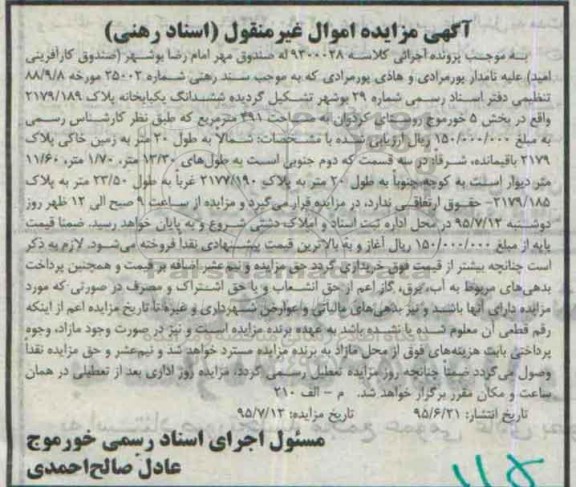 آگهی مزایده اموال غیرمنقول (اسناد رهنی)
به موجب پرونده اجرائی کلاسه ۹۳۰۰۰۲۸ له صندوق مهر امام رضا بوشهر (صندوق کارآفرینی
امید) علیه نامدار پورمرادی و هادی پورمرادی که به موجب سند رهنی شماره ۲۵۰۰۲ مورخه ۸۸/۹/۸
تنظیمی دفتر اسناد رسمی شماره ۲۹ بوشهر تشکیل گردیده ششدانگ یکبابخانه پلاک ۲۱۷۹/۱۸۹
واقع در بخش ۵ خورموج روستای کردوان به مساحت ۳۹۱ مترمربع که طبق نظر کارشناس رسمی
به مبلغ ۱۵۰/۰۰۰/۰۰۰ ریال ارزیابی شده با مشخصات: شمالاً به طول ۲۰ متر به زمین خاکی پلاک
۲۱۷۹ باقیمانده، شرقاً: در سه قسمت که دوم جنوبی است به طول‌های ۱۳/۳۰ متر، ۱/۷۰ متر، ۱۱/۶۰
متر دیوار است به کوچه جنوباً به طول ۲۰ متر به پلاک ۲۱۷۷/۱۹۰ غرباً به طول ۲۳/۵۰ متر به پلاک
۲۱۷۹/۱۸۵- حقوق ارتفاقی ندارد، در مزایده قرار می‌گیرد و مزایده از ساعت ۹ صبح الی ۱۲ ظهر روز
دوشنبه ۹۵/۷/۱۲ در محل اداره ثبت اسناد و املاک دشتی شروع و به پایان خواهد رسید. ضمنا قیمت
پایه از مبلغ ۱۵۰/۰۰۰/۰۰۰ ریال آغاز و به بالاترین قیمت پیشنهادی نقداً فروخته می‌شود. لازم به ذکر
است چنانچه بیشتر از قیمت فوق خریداری گردد حق مزایده و نیم عشر اضافه بر قیمت و همچنین پرداخت
بدهی‌های مربوط به آب، برق، گاز اعم از حق انشعاب و یا حق اشتراک و مصرف در صورتی که مورد
مزایده دارای آنها باشد و نیز بدهی‌های مالیاتی و عوارض شهرداری و غیره تا تاریخ مزایده اعم از اینکه
رقم قطعی آن معلوم شده یا نشده باشد به عهده برنده مزایده است و نیز در صورت وجود مازاد، وجوه
پرداختی بابت هزینه‌های فوق از محل مازاد به برنده مزایده مسترد خواهد شد و نیم‌عشر و حق مزایده نقداً
وصول می‌گردد ضمناً چنانچه روز مزایده تعطیل رسمی گردد، مزایده روز اداری بعد از تعطیلی در همان
ساعت و مکان مقرر برگزار خواهد شد. م - الف ۲۱۰
تاریخ انتشار: ۹۵/۶/۲۱ تاریخ مزایده: ۹۵/۷/۱۲
مسئول اجرای اسناد رسمی خورموج
عادل صالح‌احمدی